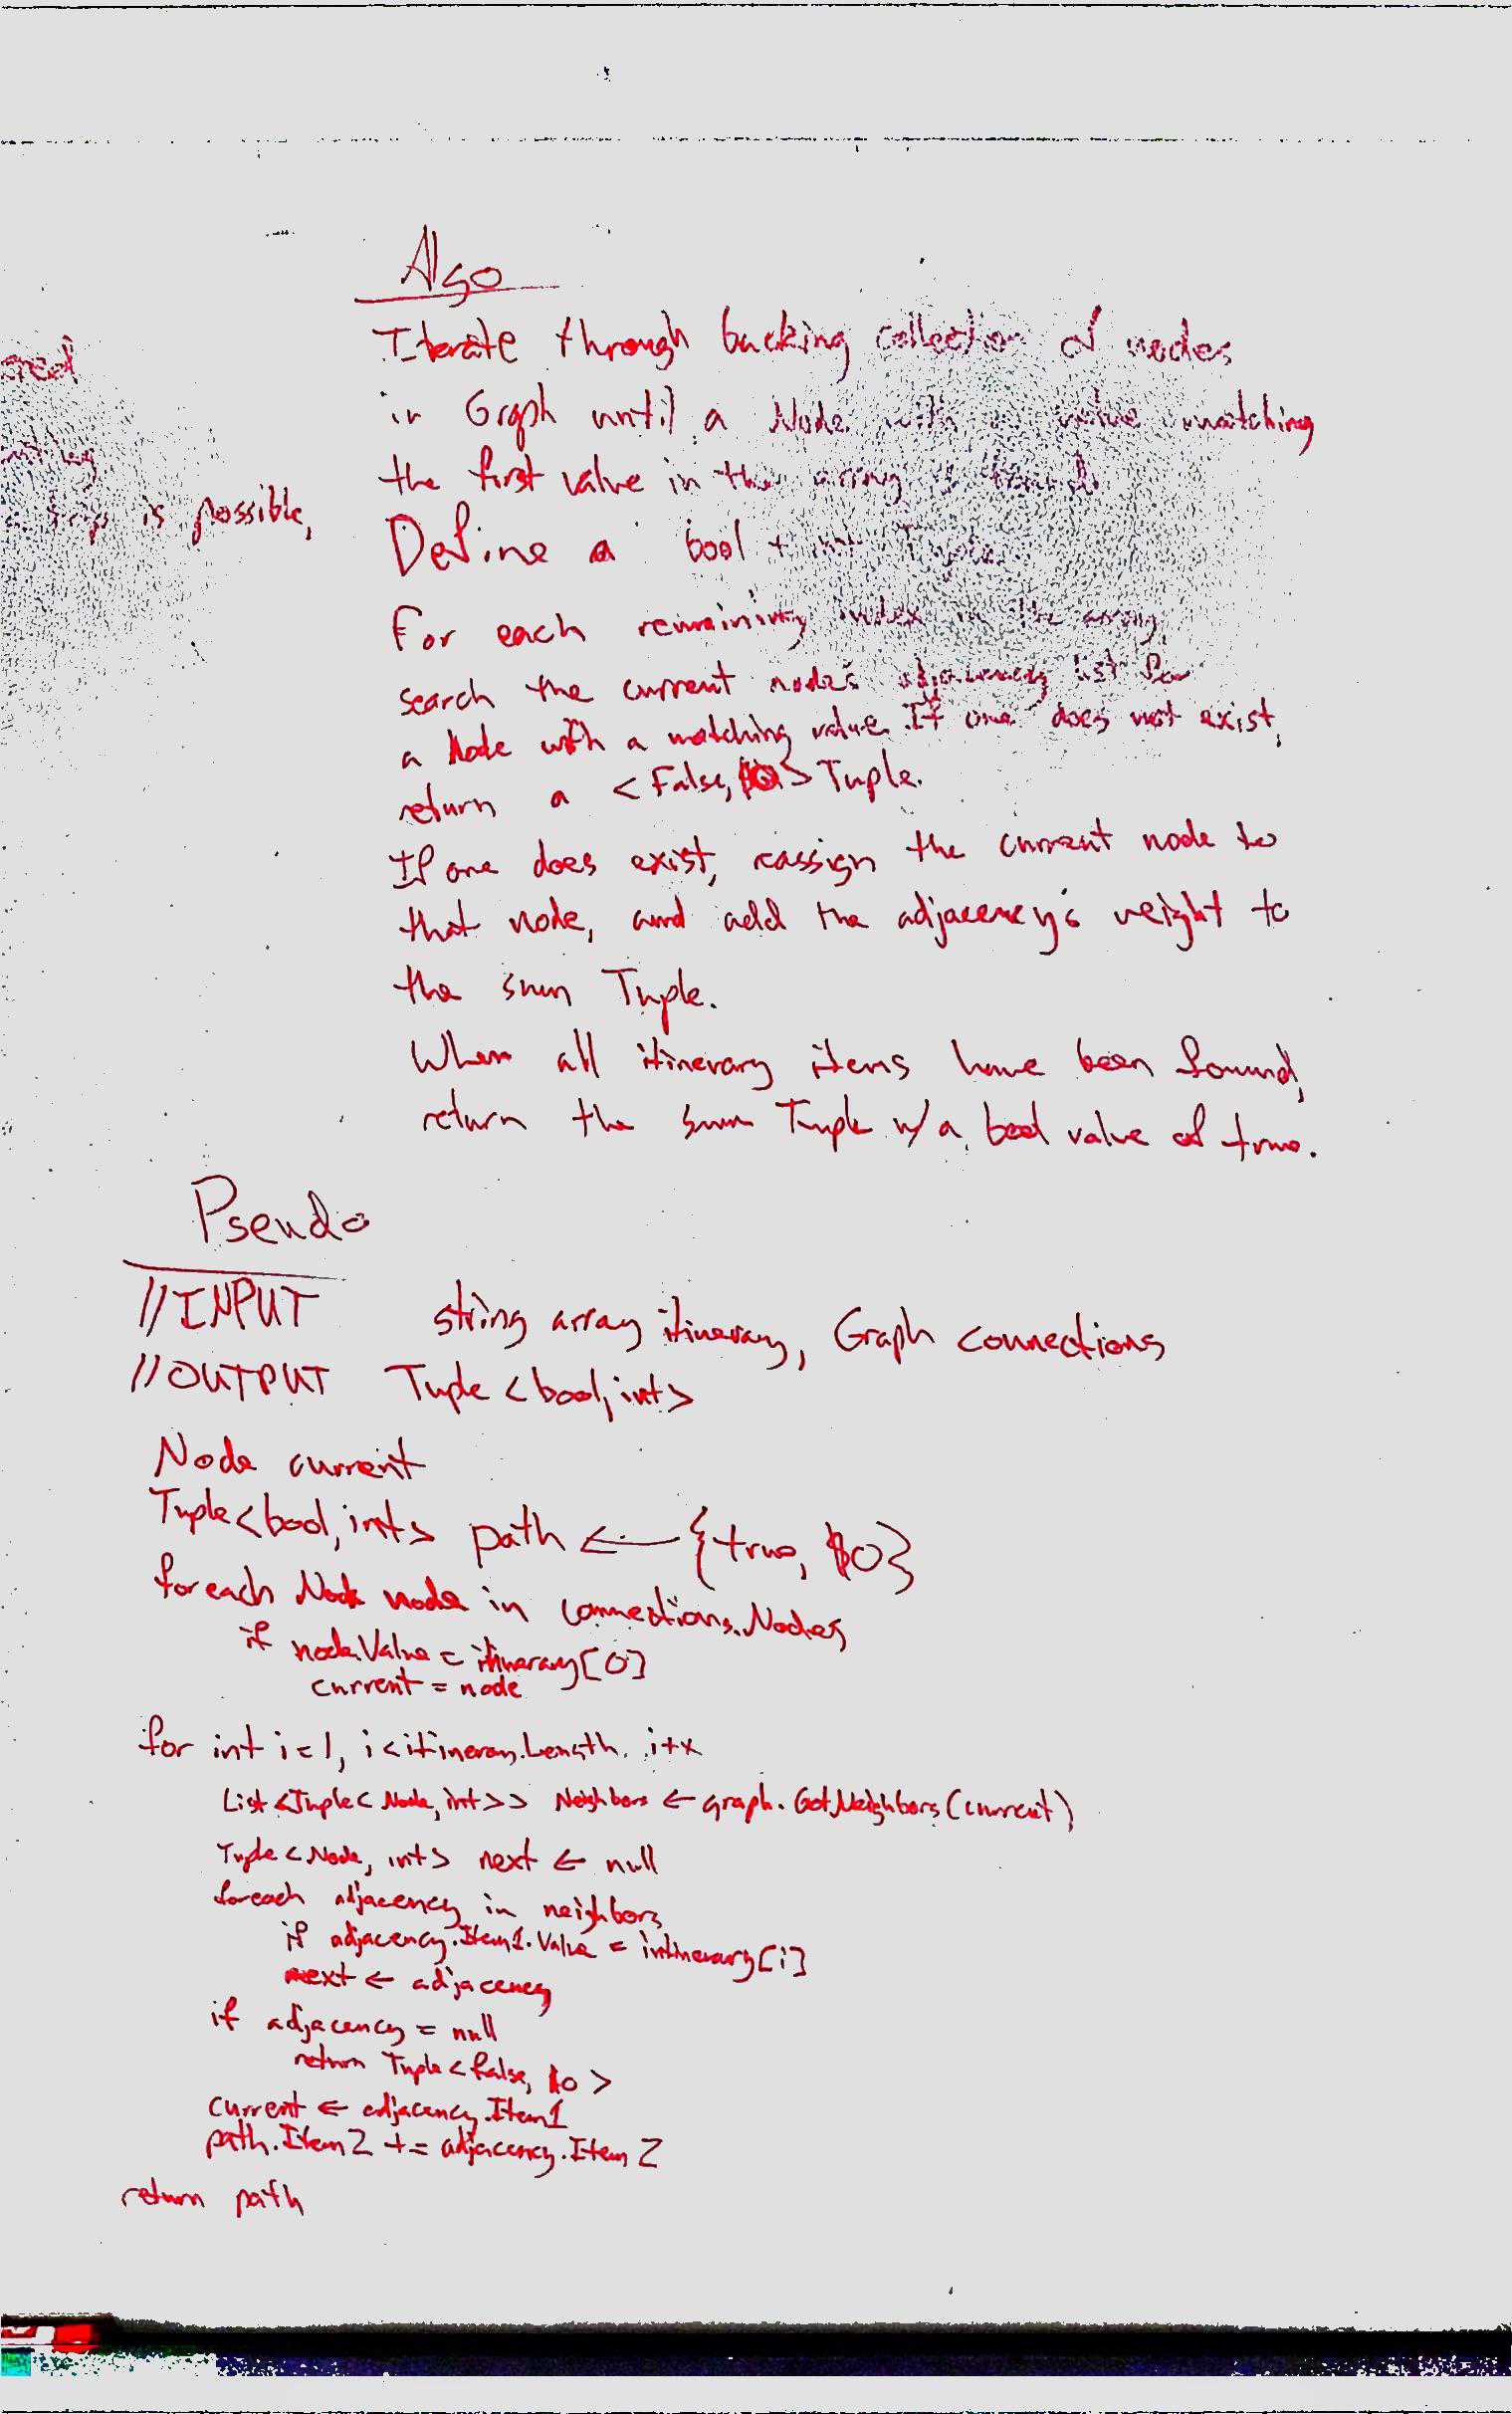 Algo
Iterate through backing collection of nodes
in Graph until a Node with a value matching
the first value in the array is found.
Define a bool + int Tuple.
For each remaining index in the array,
search the current node's adjacency list for
a Node with a matching value. If one does not exist,
return a <False, $0> Tuple.
If one does exist, reassign the current node to
that node, and add the adjacency's weight to
the sum Tuple.
When all itinerary items have been found,
return the sum Tuple w/ a bool value of true.
is possible,
Pseudo
//INPUT string array itinerary, Graph connections
//OUTPUT Tuple <bool, int>
Node current
Tuple<bool, int> path ← {true, $0}
foreach Node node in connections.Nodes
if node.Value = itinerary[0]
current = node
for int i=1, i<itinerary.Length, i++
List<Tuple<Node, int>> Neighbors ← graph.GetNeighbors(current)
Tuple<Node, int> next ← null
foreach adjacency in neighbors
if adjacency.Item1.Value = intinerary[i]
next ← adjacency
if adjacency = null
return Tuple<false, $0>
current ← adjacency.Item1
path.Item2 += adjacency.Item2
return path